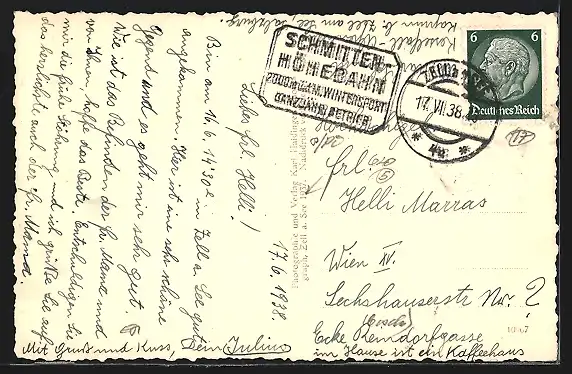 Kesselfall - Alpenhaus
Kaprun b. Zell am See, Salzburg.
SCHMITTEN-
HÖHEBAHN
2000 m ü.M. WINTERSPORT
GANZJÄHR. BETRIEB
6 6
Deutsches Reich
17.VII.38
17
17.6.1938.
Liebe Frl. Helli!
Bin am 16.6. 14'30h in Zell a. See gut
angekommen. Hier ist eine sehr schöne
Gegend und es geht mir sehr gut.
Wie ist das Befinden der Fr. Mama und
von Ihnen, hoffe das Beste. Entschuldigen Sie
mir die frühe Störung und ich grüße Sie auf
das herzlichste auch der Fr. Mama.
Mit Gruß und Kuss, Dein Julius
Photographie und Verlag Karl
Zell a. See
Frl.
Helli Marras
Wien XV.
Sechshauserstr Nr. ?
Ecke Reindorfgasse
im Hause ist ein Kaffeehaus